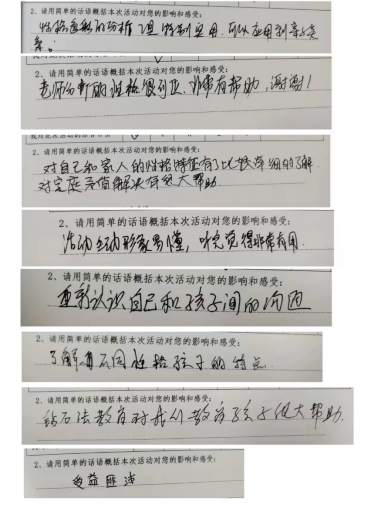 2、请用简单的话语概括本次活动对您的影响和感受:
性格色彩的分析 特别实用,可以应用到亲子关
系。
2、请用简单的话语概括本次活动对您的影响和感受:
老师分析的性格很到位,非常有帮助,谢谢!
2、请用简单的话语概括本次活动对您的影响和感受:
对自己和家人的性格特征有了比较详细的了解
对家庭矛盾解决有很大帮助
2、请用简单的话语概括本次活动对您的影响和感受:
活动生动形象易懂,听完觉得非常有用
2、请用简单的话语概括本次活动对您的影响和感受:
重新认识自己和孩子间的沟通
2、请用简单的话语概括本次活动对您的影响和感受:
了解不同性格孩子的特点
2、请用简单的话语概括本次活动对您的影响和感受:
钻石法教育对我们教育孩子很大帮助.
2、请用简单的话语概括本次活动对您的影响和感受:
受益匪浅